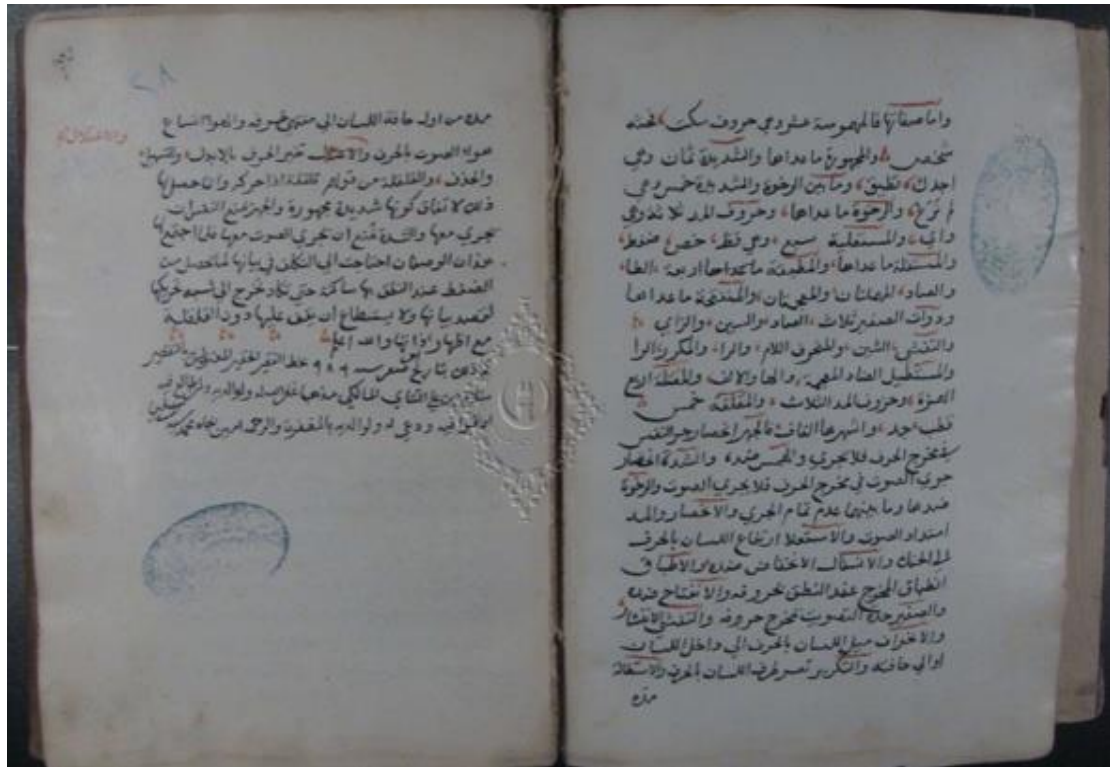 واما صفاتها فالمهموسة عشر وهي حروف سكت فحثه
شخص والمجهورة ما عداها والشديدة ثمان وهي
اجدك تطبق وما بين الرخوة والشديدة خمس وهي
والرخوة ما عداها وحروف المد ثلاثة وهي
واي والمستعلية سبع وهي قظ خص ضغط
والمستفلة ما عداها والمطبقة اربعة الطا
والصاد المهملتان والمعجمتان والمنفتحة ما عداها
وذوات الصفير ثلاث الصاد والسين والزاي
والتفشي الشين والمنحرف اللام والرا والمكرر الرا
والمستطيل الضاد المعجمة والها والالف والمعتلة اربع
الهمزة وحروف المد الثلاث والمقلقة خمس
قطب جد واشهرها القاف فالجهر انحصار جري النفس
في مخرج الحرف فلا يجري والهمس ضده والشدة انحصار
جري الصوت في مخرج الحرف فلا يجري الصوت والرخوة
ضدها وما بينهما عدم تمام الجري والانحصار والمد
امتداد الصوت والاستعلا ارتفاع اللسان بالحرف
الحنك والاستفال الانخفاض ضده والاطباق
انطباق المخرج عند النطق بحروفه والانفتاح ضده
والصفير حدة الصوت مخرج حروفه والتفشي الانتشار
والانحراف ميل اللسان بالحرف الى داخل اللسان
او الى حافته والتكرير اللسان بالحرف والاستطالة
مده
مده من اول حافة اللسان الى منتهى طرفه والهوا اتساع
هواء الصوت بالحرف تغير الحرف بالابدال والتسهيل
والاعتلال
والحذف والقلقلة من قولهم قلقله اذا حركه وانما حصل لها
ذلك لاتفاق كونها شديدة مجهورة والجهر يمنع النفس ان
يجري معها والشدة تمنع ان يجري الصوت معها فلما اجتمع لها
هذان الوصفان احتاجت الى التكلف في بيانها لما تحصل من
الضغط عند النطق بها ساكنة حتى تكاد تخرج الى شبه تحريكها
لقصد بيانها ولا يستطاع ان يوقف عليها دون القلقلة
مع اظهار ذاتها والله اعلم
بتاريخ سنة ٩٠٩ خط الفقير الحقير بالتقصير
المالكي مذهبا غفر الله له ولوالديه ولمن طالع فيه
او قرا فيه ودعى له ولوالديه بالمغفرة والرحمة امين بجاه محمد